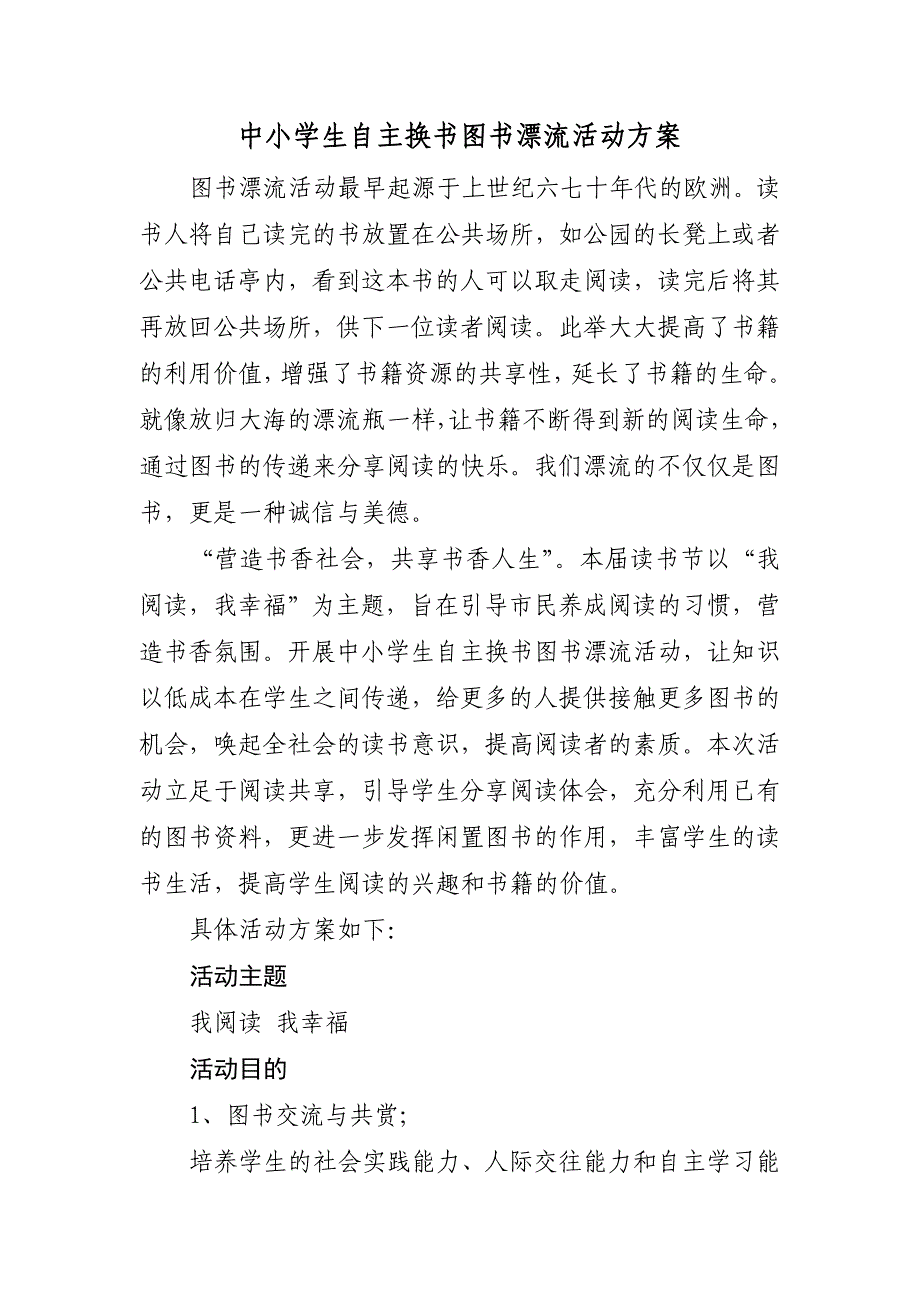 中小学生自主换书图书漂流活动方案
图书漂流活动最早起源于上世纪六七十年代的欧洲。读
书人将自己读完的书放置在公共场所，如公园的长凳上或者
公共电话亭内，看到这本书的人可以取走阅读，读完后将其
再放回公共场所，供下一位读者阅读。此举大大提高了书籍
的利用价值，增强了书籍资源的共享性，延长了书籍的生命。
就像放归大海的漂流瓶一样，让书籍不断得到新的阅读生命，
通过图书的传递来分享阅读的快乐。我们漂流的不仅仅是图
书，更是一种诚信与美德。
“营造书香社会，共享书香人生”。本届读书节以“我
阅读，我幸福”为主题，旨在引导市民养成阅读的习惯，营
造书香氛围。开展中小学生自主换书图书漂流活动，让知识
以低成本在学生之间传递，给更多的人提供接触更多图书的
机会，唤起全社会的读书意识，提高阅读者的素质。本次活
动立足于阅读共享，引导学生分享阅读体会，充分利用已有
的图书资料，更进一步发挥闲置图书的作用，丰富学生的读
书生活，提高学生阅读的兴趣和书籍的价值。
具体活动方案如下：
活动主题
我阅读 我幸福
活动目的
1、图书交流与共赏；
培养学生的社会实践能力、人际交往能力和自主学习能